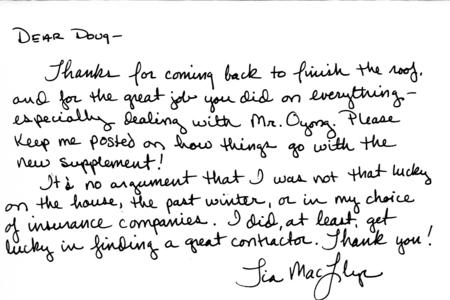 DEAR DOUG—
Thanks for coming back to finish the roof,
and for the great job you did on everything—
especially dealing with Mr. Oyong. Please
keep me posted on how things go with the
new supplement!
It's no argument that I was not that lucky
on the house, the past winter, or in my choice
of insurance companies. I did, at least, get
lucky in finding a great contractor. Thank you!
Tia